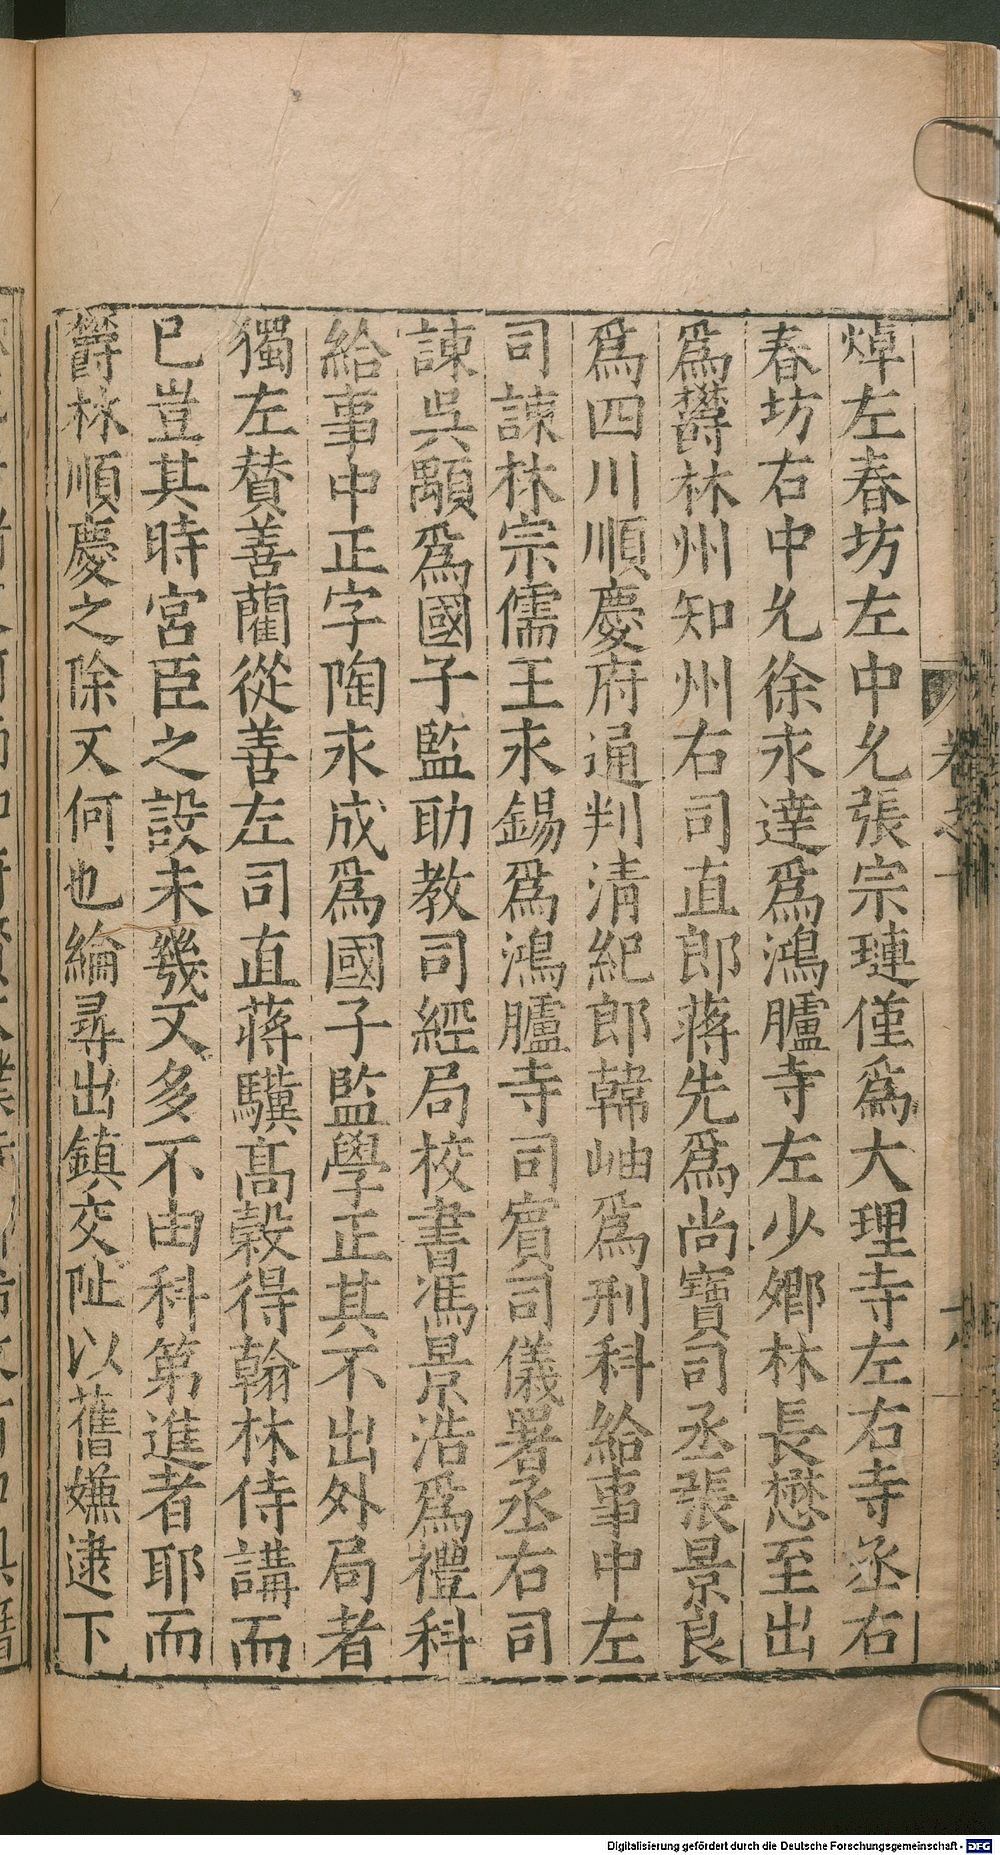 焯左春坊左中允張宗璉僅爲大理寺左右寺丞右
春坊右中允徐永達爲鴻臚寺左少卿林長懋至出
爲欝林州知州右司直郎蒋先爲尚寶司丞張景良
爲四川順慶府通判清紀郎韓岫爲刑科給事中左
司諫林宗儒王永錫爲鴻臚寺司賓司儀署丞右司
諫吳顒爲國子監助教司經局校書馮景浩爲禮科
給事中正字陶永成爲國子監學正其不出外局者
獨左賛善藺從善左司直蒋驥髙穀得翰林侍講而
已豈其時宮臣之設未幾又多不由科第進者耶而
欝林順慶之除又何也綸尋出鎮交阯以舊嫌逮下
卷之一
Digitalisierung gefördert durch die Deutsche Forschungsgemeinschaft - DFG